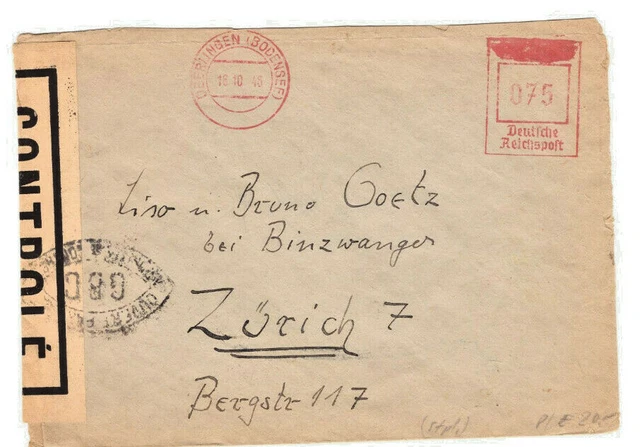 UEBERLINGEN (BODENSEE)
18 10 46
075
Deutsche
Reichspost
CONTROLÉ
OUVERT
GBD
Liso u. Bruno Goetz
bei Binzwanger
Zürich 7
Bergstr 117
(Stpl)